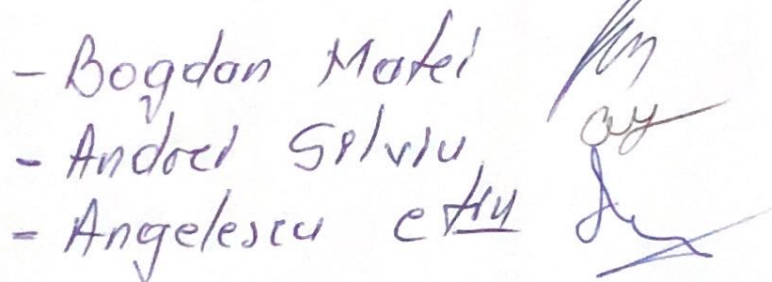 - Bogdan Matei
- Andrei Silviu
- Angelescu